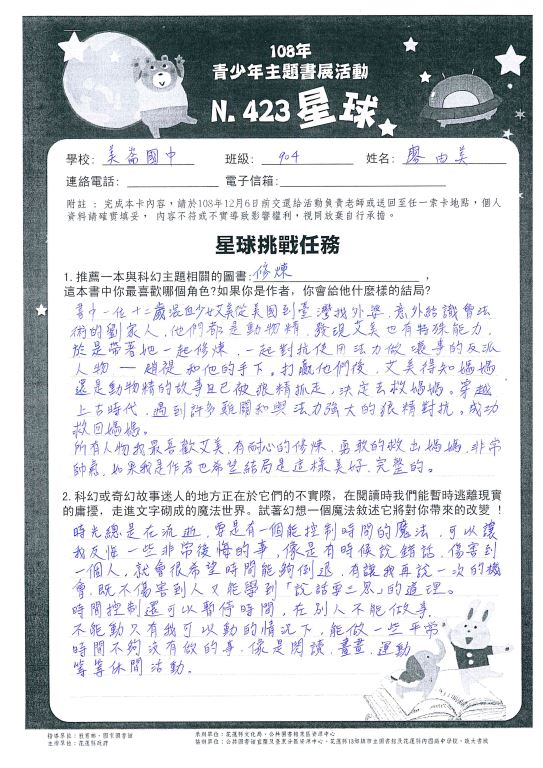 108年
青少年主題書展活動
N. 423 星球
學校: 美崙國中 班級: 904 姓名: 廖由美
連絡電話: 電子信箱:
附註：完成本卡內容，請於108年12月6日前交還給活動負責老師或送回至任一索卡地點，個人
資料請確實填妥， 內容不符或不實導致影響權利，視同放棄自行承擔。
星球挑戰任務
1. 推薦一本與科幻主題相關的圖書: 修煉 ，
這本書中你最喜歡哪個角色?如果你是作者，你會給他什麼樣的結局?
書中一位十二歲混血少女艾美從美國到臺灣找外婆，意外結識會法
術的劉家人，他們都是動物精，發現艾美也有特殊能力，
於是帶著她一起修煉，一起對抗使用法力做壞事的反派
人物 — 趙禔和他的手下。打贏他們後，艾美得知媽媽
還是動物精的故事且已被狼精抓走，決定去救媽媽。穿越
上古時代，遇到許多難關和與法力強大的狼精對抗。成功
救回媽媽。
所有人物我最喜歡艾美，有耐心的修煉，勇敢的救出媽媽，非常
帥氣，如果我是作者也希望結局是這樣美好、完整的。
2. 科幻或奇幻故事迷人的地方正在於它們的不實際，在閱讀時我們能暫時逃離現實
的庸擾，走進文字砌成的魔法世界。試著幻想一個魔法敘述它將對你帶來的改變 !
時光總是在流逝，要是有一個能控制時間的魔法，可以讓
我反悔一些非常後悔的事，像是有時候說錯話，傷害到
一個人，就會很希望時間能夠倒退，有讓我再說一次的機
會，既不傷害到人又能學到「說話要三思」的道理。
時間控制還可以暫停時間，在別人不能做事、
不能動只有我可以動的情況下，能做一些平常
時間不夠沒有做的事，像是閱讀、畫畫、運動
等等休閒活動。
指導單位：教育部、國家圖書館
主辦單位：花蓮縣政府
承辦單位：花蓮縣文化局、公共圖書館東區資源中心